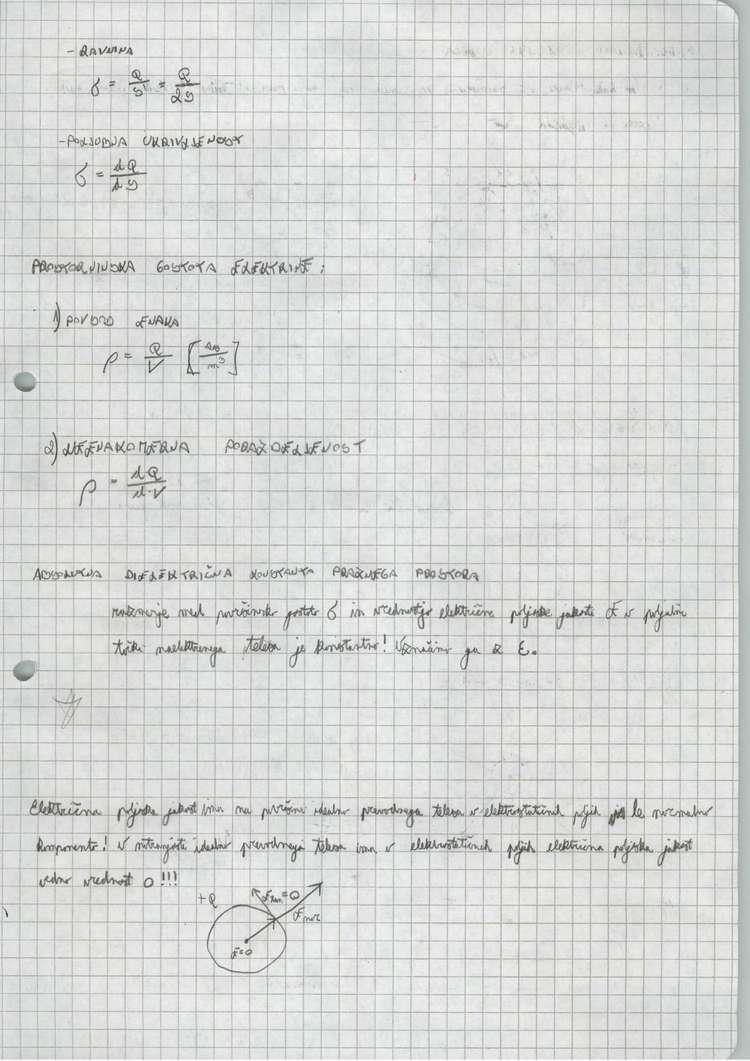 - RAVNINA
σ = Q/S = Q/2S
- POLJUDNA UKRIVLJENOST
σ = dQ/dS
PROSTORNINSKA GOSTOTA ELEKTRINE:
1) POVSOD ENAKA
ρ = Q/V [As/m³]
2) NEENAKOMERNA PORAZDELJENOST
ρ = dQ/d·V
ABSOLUTNA DIELEKTRIČNA KONSTANTA PRAZNEGA PROSTORA
razmerje med površinsko gostoto σ in vrednostjo električne poljske jakosti E v poljubni
točki naelektrenega telesa je konstantno! Označimo ga z ε.
Električna poljska jakost ima na površini idealno prevodnega telesa v elektrostatičnih poljih le normalno
komponento! V notranjosti idealno prevodnega telesa ima v elektrostatičnih poljih električna poljska jakost
vedno vrednost 0!!!
+Q Etan=0
Enor
E=0